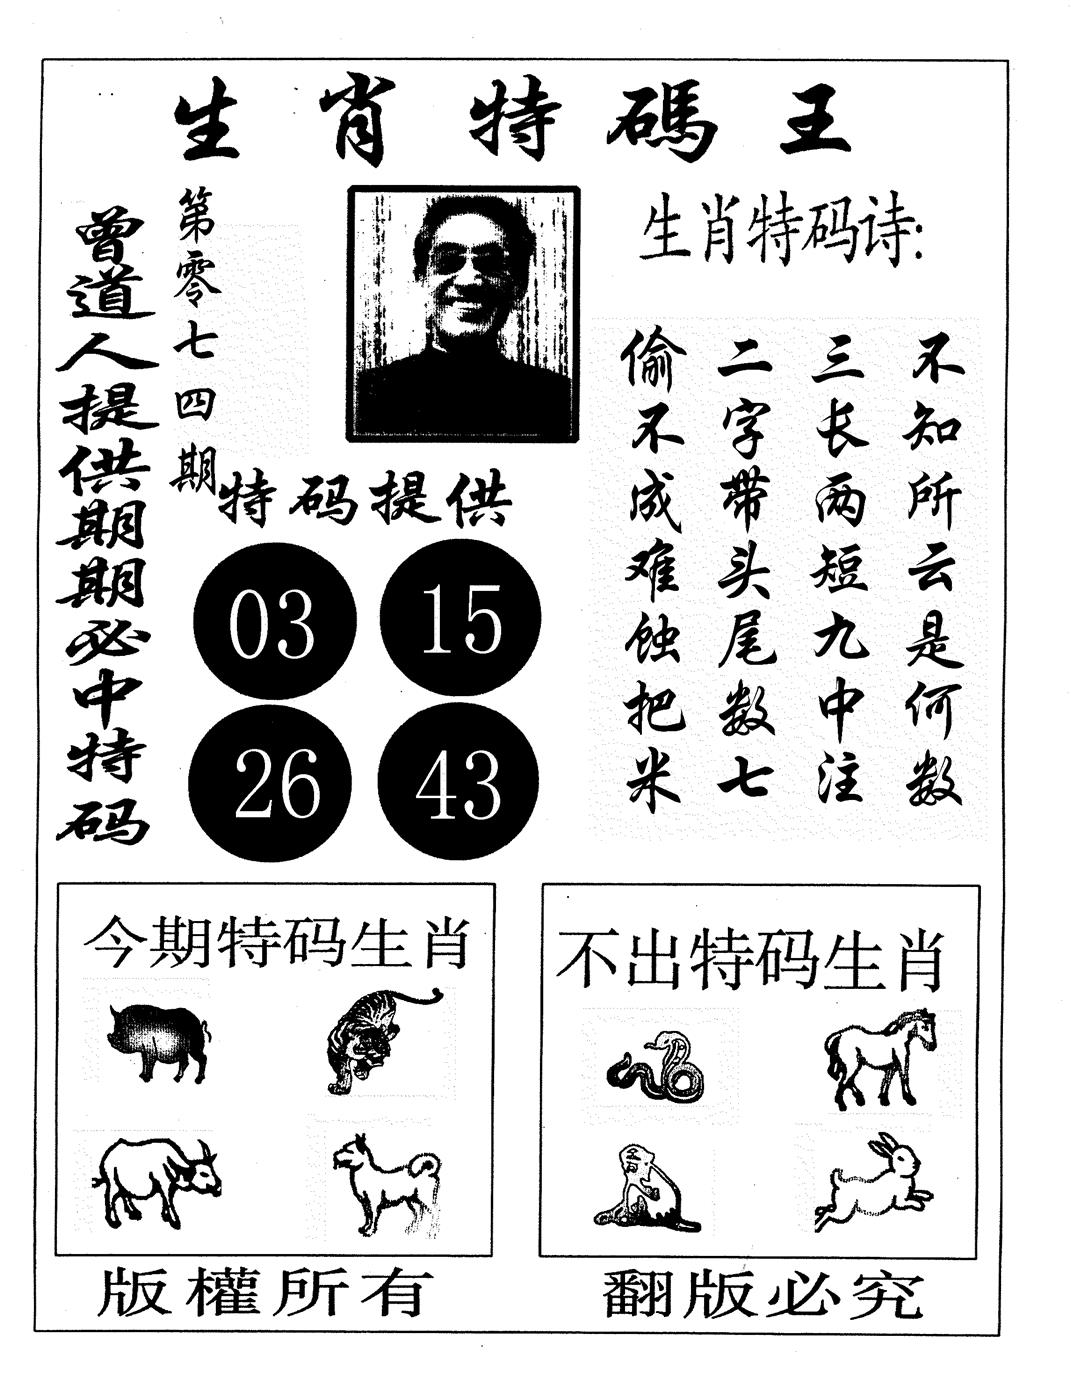 生肖特碼王
曾道人提供期期必中特码
第零七四期
生肖特码诗:
不知所云是何数
三长两短九中注
二字带头尾数七
偷不成难蚀把米
特码提供
03 15
26 43
今期特码生肖
不出特码生肖
版權所有
翻版必究